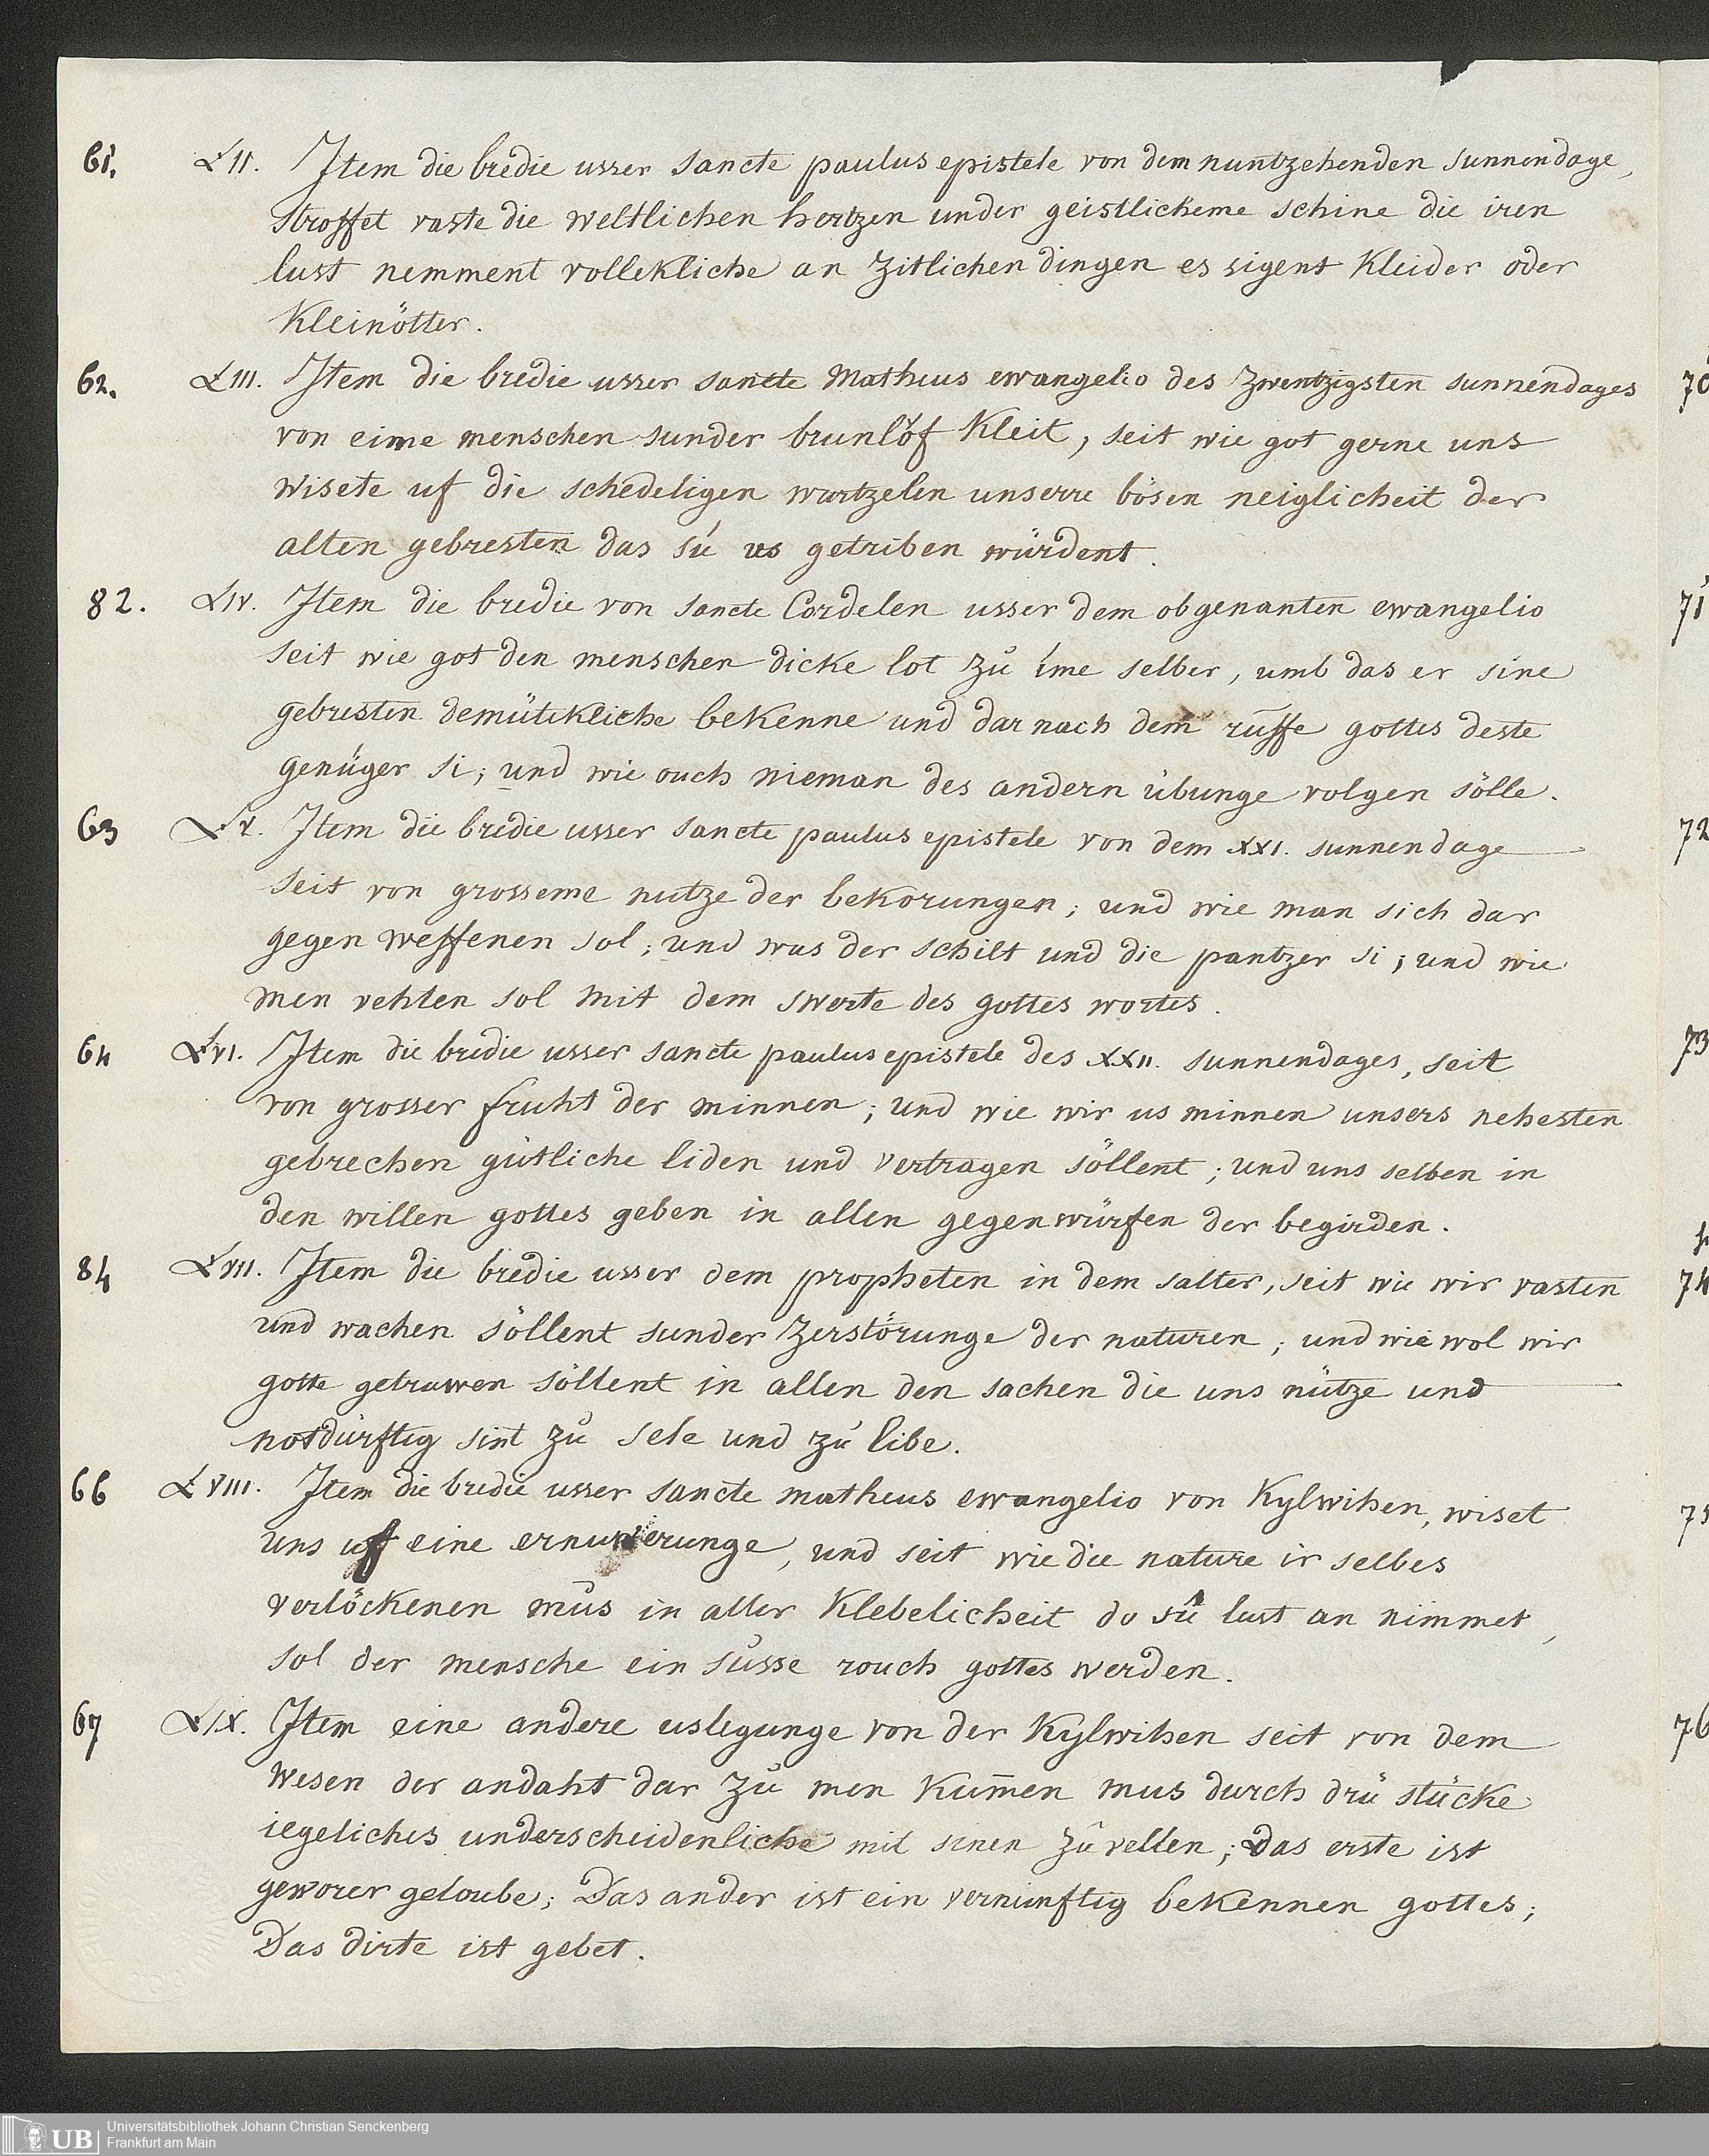 61. LII. Item die bredie usser sancte paulus epistele von dem nuntzehenden sunnendage,
stroffet vaste die weltlichen hertzen under geistlicheme schine die iren
lust nemment vollekliche an zitlichen dingen es sigent kleider oder
kleinötter.
62. LIII. Item die bredie usser sancte Matheus ewangelio des zwentzigsten sunnendages
von eime menschen sunder brunlöf kleit, seit wie got gerne uns
wisete uf die schedeligen wurtzelen unserre bösen neiglicheit der
alten gebresten das sú us getriben würdent.
82. LIV. Item die bredie von sancte Cordelen usser dem obgenanten ewangelio
seit wie got den menschen dicke lot zů ime selber, umb das er sine
gebresten demütekliche bekenne und dar nach dem rüffe gottes deste
genüger si; und wie ouch nieman des andern übunge volgen sölle.
63 LV. Item die bredie usser sancte paulus epistele von dem XXI. sunnendage
seit von grosseme nutze der bekorungen; und wie man sich dar
gegen weffenen sol; und was der schilt und die pantzer si; und wie
men vehten sol mit dem swerte des gottes wortes.
64 LVI. Item die bredie usser sancte paulus epistele des XXII. sunnendages, seit
von grosser fruht der minnen; und wie wir us minnen unsers nehesten
gebrechen gütliche liden und vertragen söllent; und uns selben in
den willen gottes geben in allen gegenwürfen der begirden.
84 LVII. Item die bredie usser dem propheten in dem salter, seit wie wir vasten
und wachen söllent sunder zerstörunge der naturen; und wie wol wir
gotte getruwen söllent in allen den sachen die uns nütze und
notdürftig sint zů sele und zů libe.
66 LVIII. Item die bredie usser sancte matheus ewangelio von Kylwihen, wiset
uns uf eine ernuwerunge, und seit wie die nature ir selbes
verlöckenen můs in aller klebelicheit do sü lust an nimmet,
sol der mensche ein süsse rouch gottes werden.
67 LIX. Item eine andere uslegunge von der Kylwihen seit von dem
wesen der andaht dar zů men kum̄en mus durch drü stücke
iegeliches underscheidenliche mit sinen zů vellen; das erste ist
geworer geloube; Das ander ist ein vernunftig bekennen gottes;
Das dirte ist gebet.
70
71
72
73
74
75
76
UB
Universitätsbibliothek Johann Christian Senckenberg
Frankfurt am Main